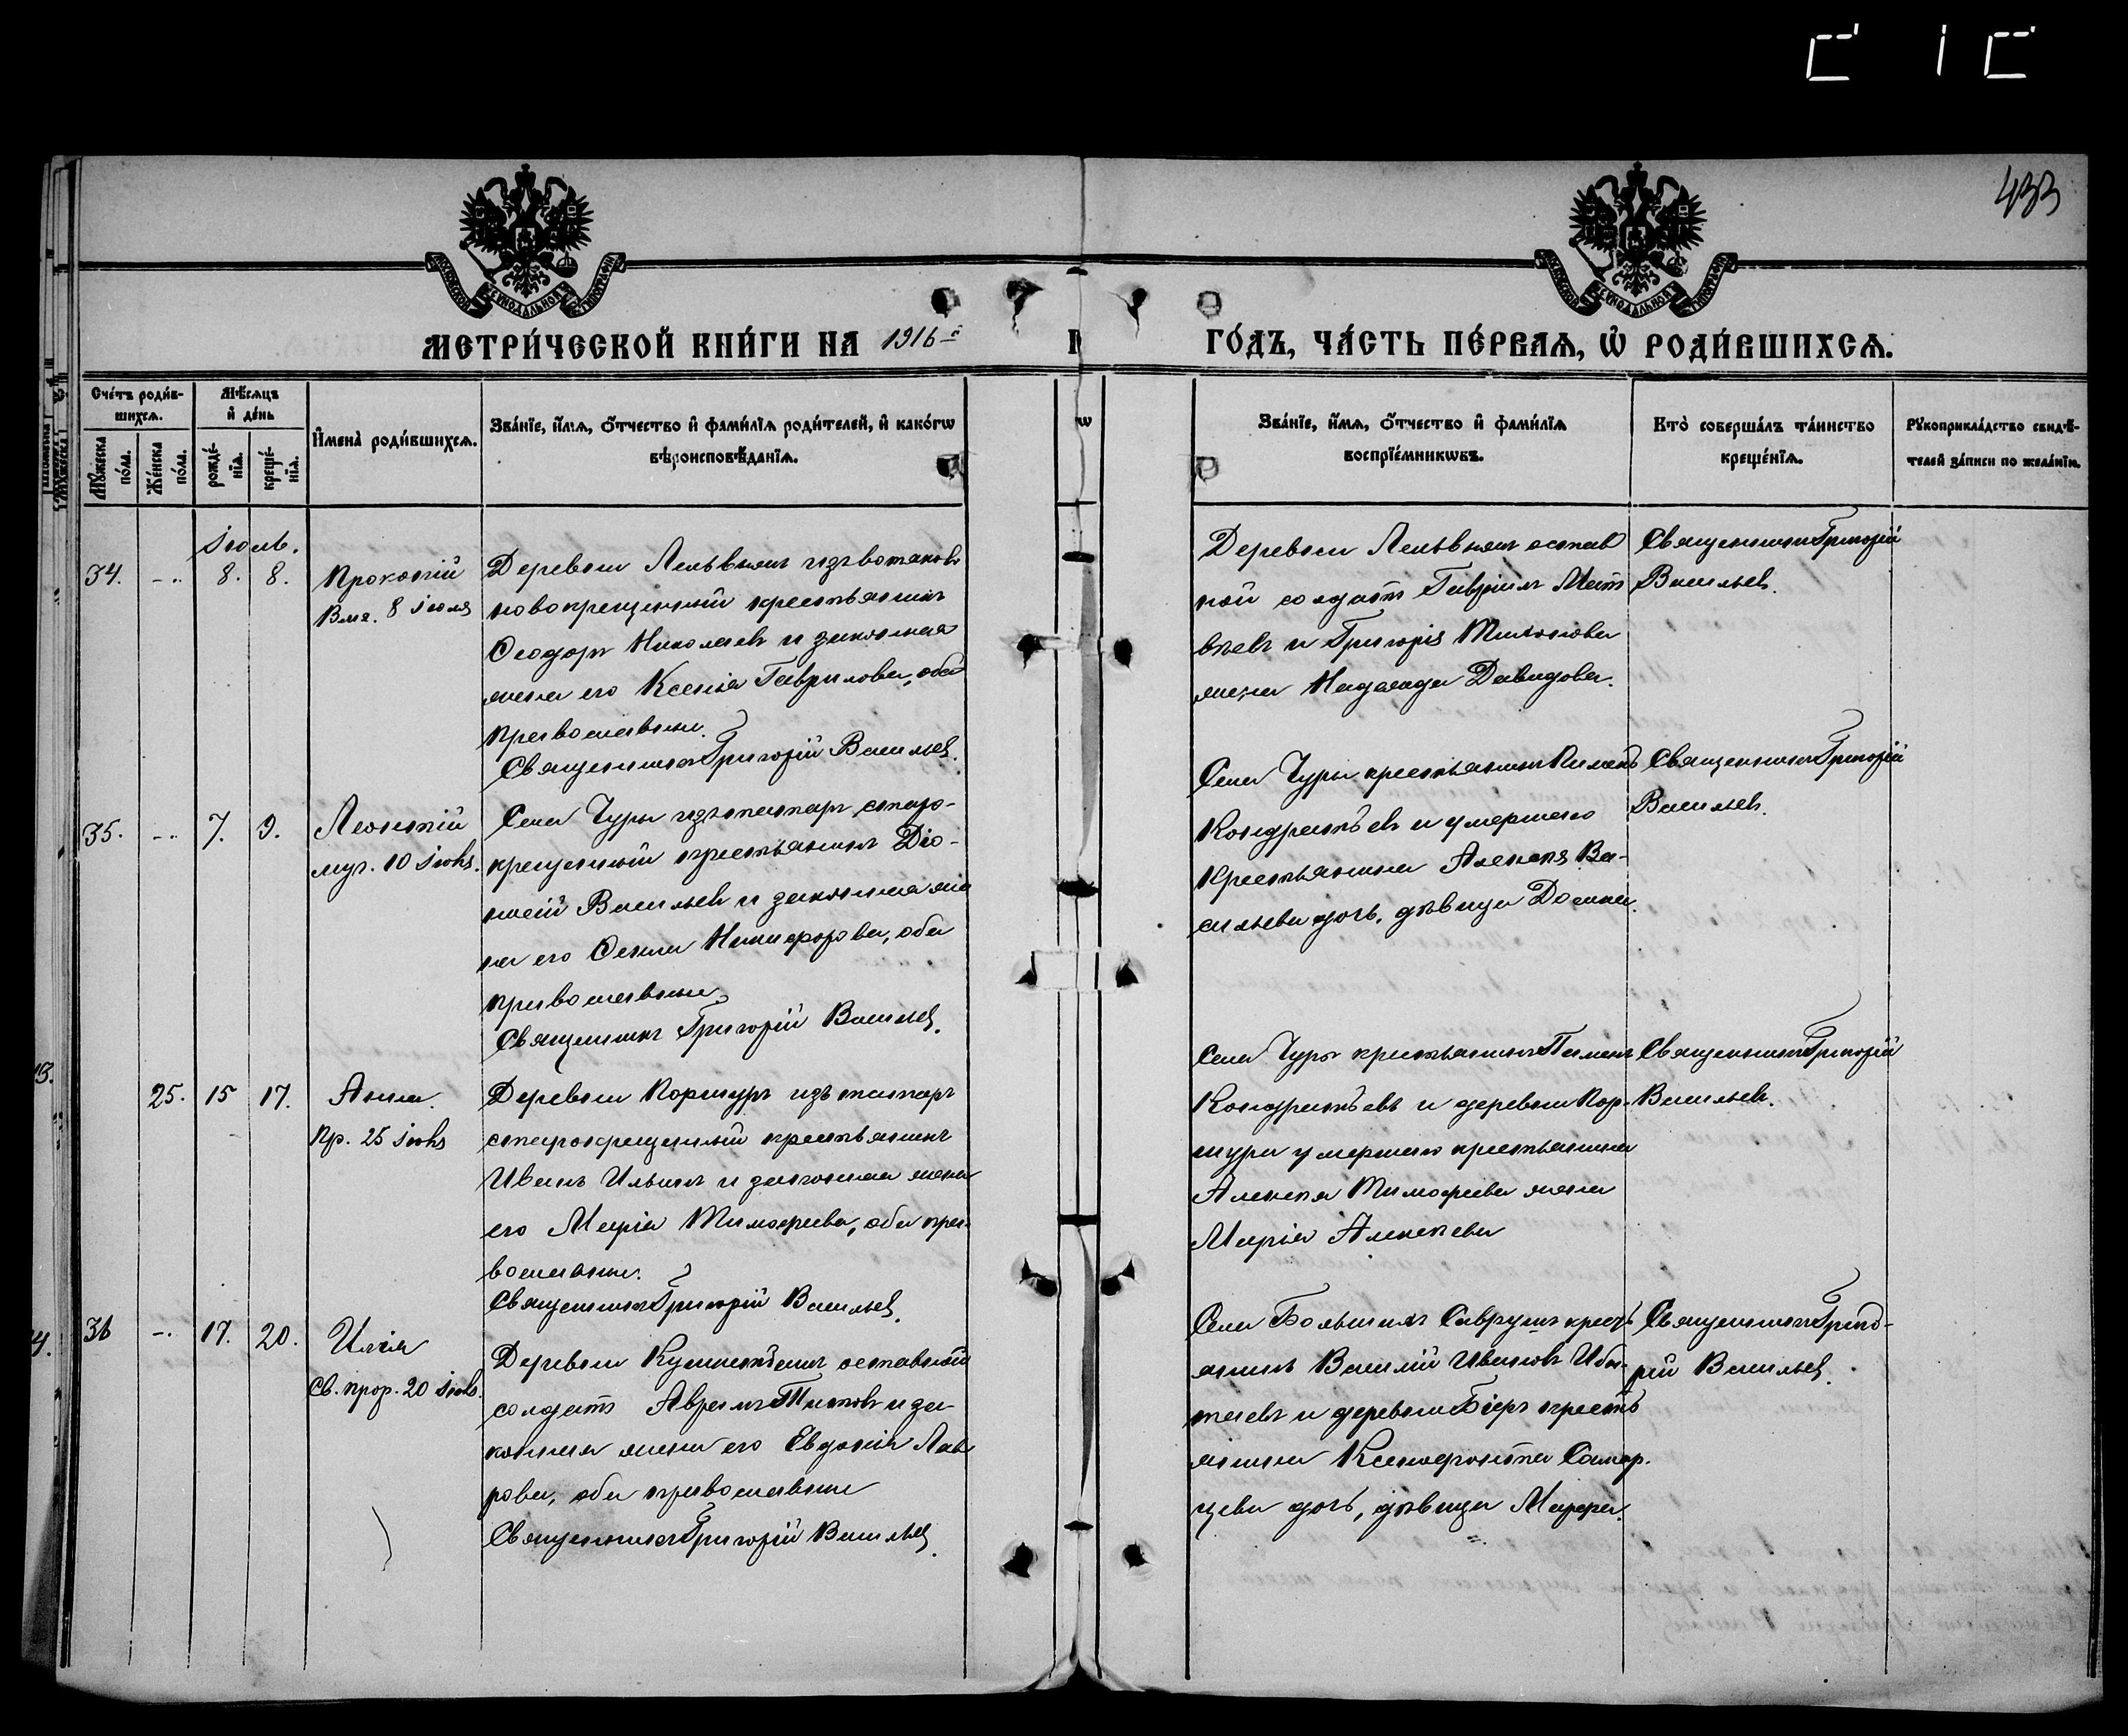 433
МОСКОВСКОЙ СѴНОДАЛЬНОЙ ТИПОГРАФІИ
МОСКОВСКОЙ СѴНОДАЛЬНОЙ ТИПОГРАФІИ
МЕТРИ́ЧЕСКОЙ КНИ́ГИ НА 1916 й
ГО́ДЪ, ЧА́СТЬ ПЕ́РВАѦ, Ѡ҆ РОДИ́ВШИХСѦ.
Сче́тъ роди́в-
шихсѧ.
Мꙋ́жеска
по́ла.
Же́нска
по́ла.
Мѣ́сѧцъ
и҆ де́нь
рожде́-
нїѧ.
креще́-
нїѧ.
И҆мена̀ роди́вшихсѧ.
Зва́нїе, и҆́мѧ, ѻ҆́тчество и҆ фами́лїѧ роди́телей, и҆ како́гѡ
вѣроисповѣ́данїѧ.
Зва́нїе, и҆́мѧ, ѻ҆́тчество и҆ фами́лїѧ
воспрїе́мникѡвъ.
Кто̀ соверша́лъ та́инство
креще́нїѧ.
Рꙋкоприкла́дство свидѣ́-
телей за́писи по жела́нїю.
Іюль.
34. -.. 8. 8.
Прокопій
Вмч. 8 іюля
Деревни изъ вотяковъ
новокрещенный крестьянинъ
Ѳеодоръ Николаевъ и законная
жена его Ксенія Гаврилова, оба
православны.
Священникъ Григорій Васильевъ.
Деревни остав
ной солдатъ Гавріилъ Мат
вѣевъ и Григорія
жена Надежда Давидова.
Священникъ Григорій
Васильевъ.
35. -.. 7. 9.
Леонтій
муч. 10 іюля.
Села Чуры изъ татаръ старо-
крещенный крестьянинъ Діо-
нисій Васильевъ и законная же
на его Ѳекла Никифорова, оба
православны.
Священникъ Григорій Васильевъ.
Села Чуры крестьянинъ Пименъ
Кондратьевъ и умершаго
крестьянина Алексѣя Ва-
сильева дочь, дѣвица Домна.
Священникъ Григорій
Васильевъ.
25. 15 17.
Анна.
Пр. 25 іюля
Деревни Поршуръ изъ татаръ
старокрещенный крестьянинъ
Иванъ Ильинъ и законная жена
его Марія Тимофеева, оба пра-
вославны.
Священникъ Григорій Васильевъ.
Села Чуры крестьянинъ Пименъ
Кондратьевъ и деревни Пор-
шура умершаго крестьянина
Алексѣя Тимофеева жена
Марія Алексѣева
Священникъ Григорій
Васильевъ.
36 -. 17. 20.
Илія
Св. прор. 20 іюля.
Деревни оставной
солдатъ Титовъ и за-
конная жена его Евдокія Лав
рова, оба православны
Священникъ Григорій Васильевъ.
Села Большихъ Саврушъ кресть
янинъ Василій Ивановъ
и деревни кресть
янина Ксенофонта
дочь, дѣвица Марфа.
Священникъ Григо-
рій Васильевъ.